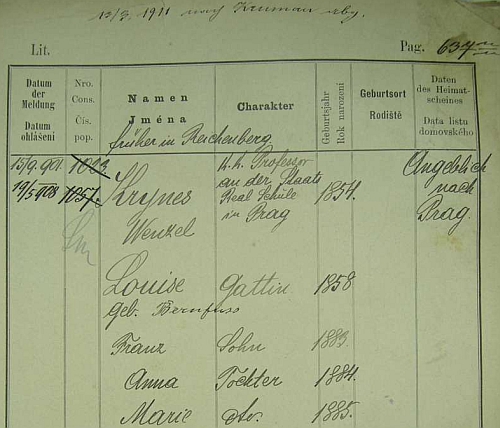 13/3. 1911 nach Krumau
Lit.
Pag.
Datum der Meldung
Datum ohlášení
Nro. Cons.
Čís. pop.
Namen
Jména
Charakter
Geburtsjahr
Rok narození
Geburtsort
Rodiště
Daten des Heimatscheines
Data listu domovského
früher in Reichenberg
15/9. 901. 1023 k.k. Professor Angeblich
19/5 908 1057. Krynes an der Staats 1854. nach
Real Schule
Wenzel in Prag Prag.
Louise Gattin 1858
geb. Bernfuss
Franz Sohn 1883.
Anna Tochter 1884.
Marie dto. 1885.